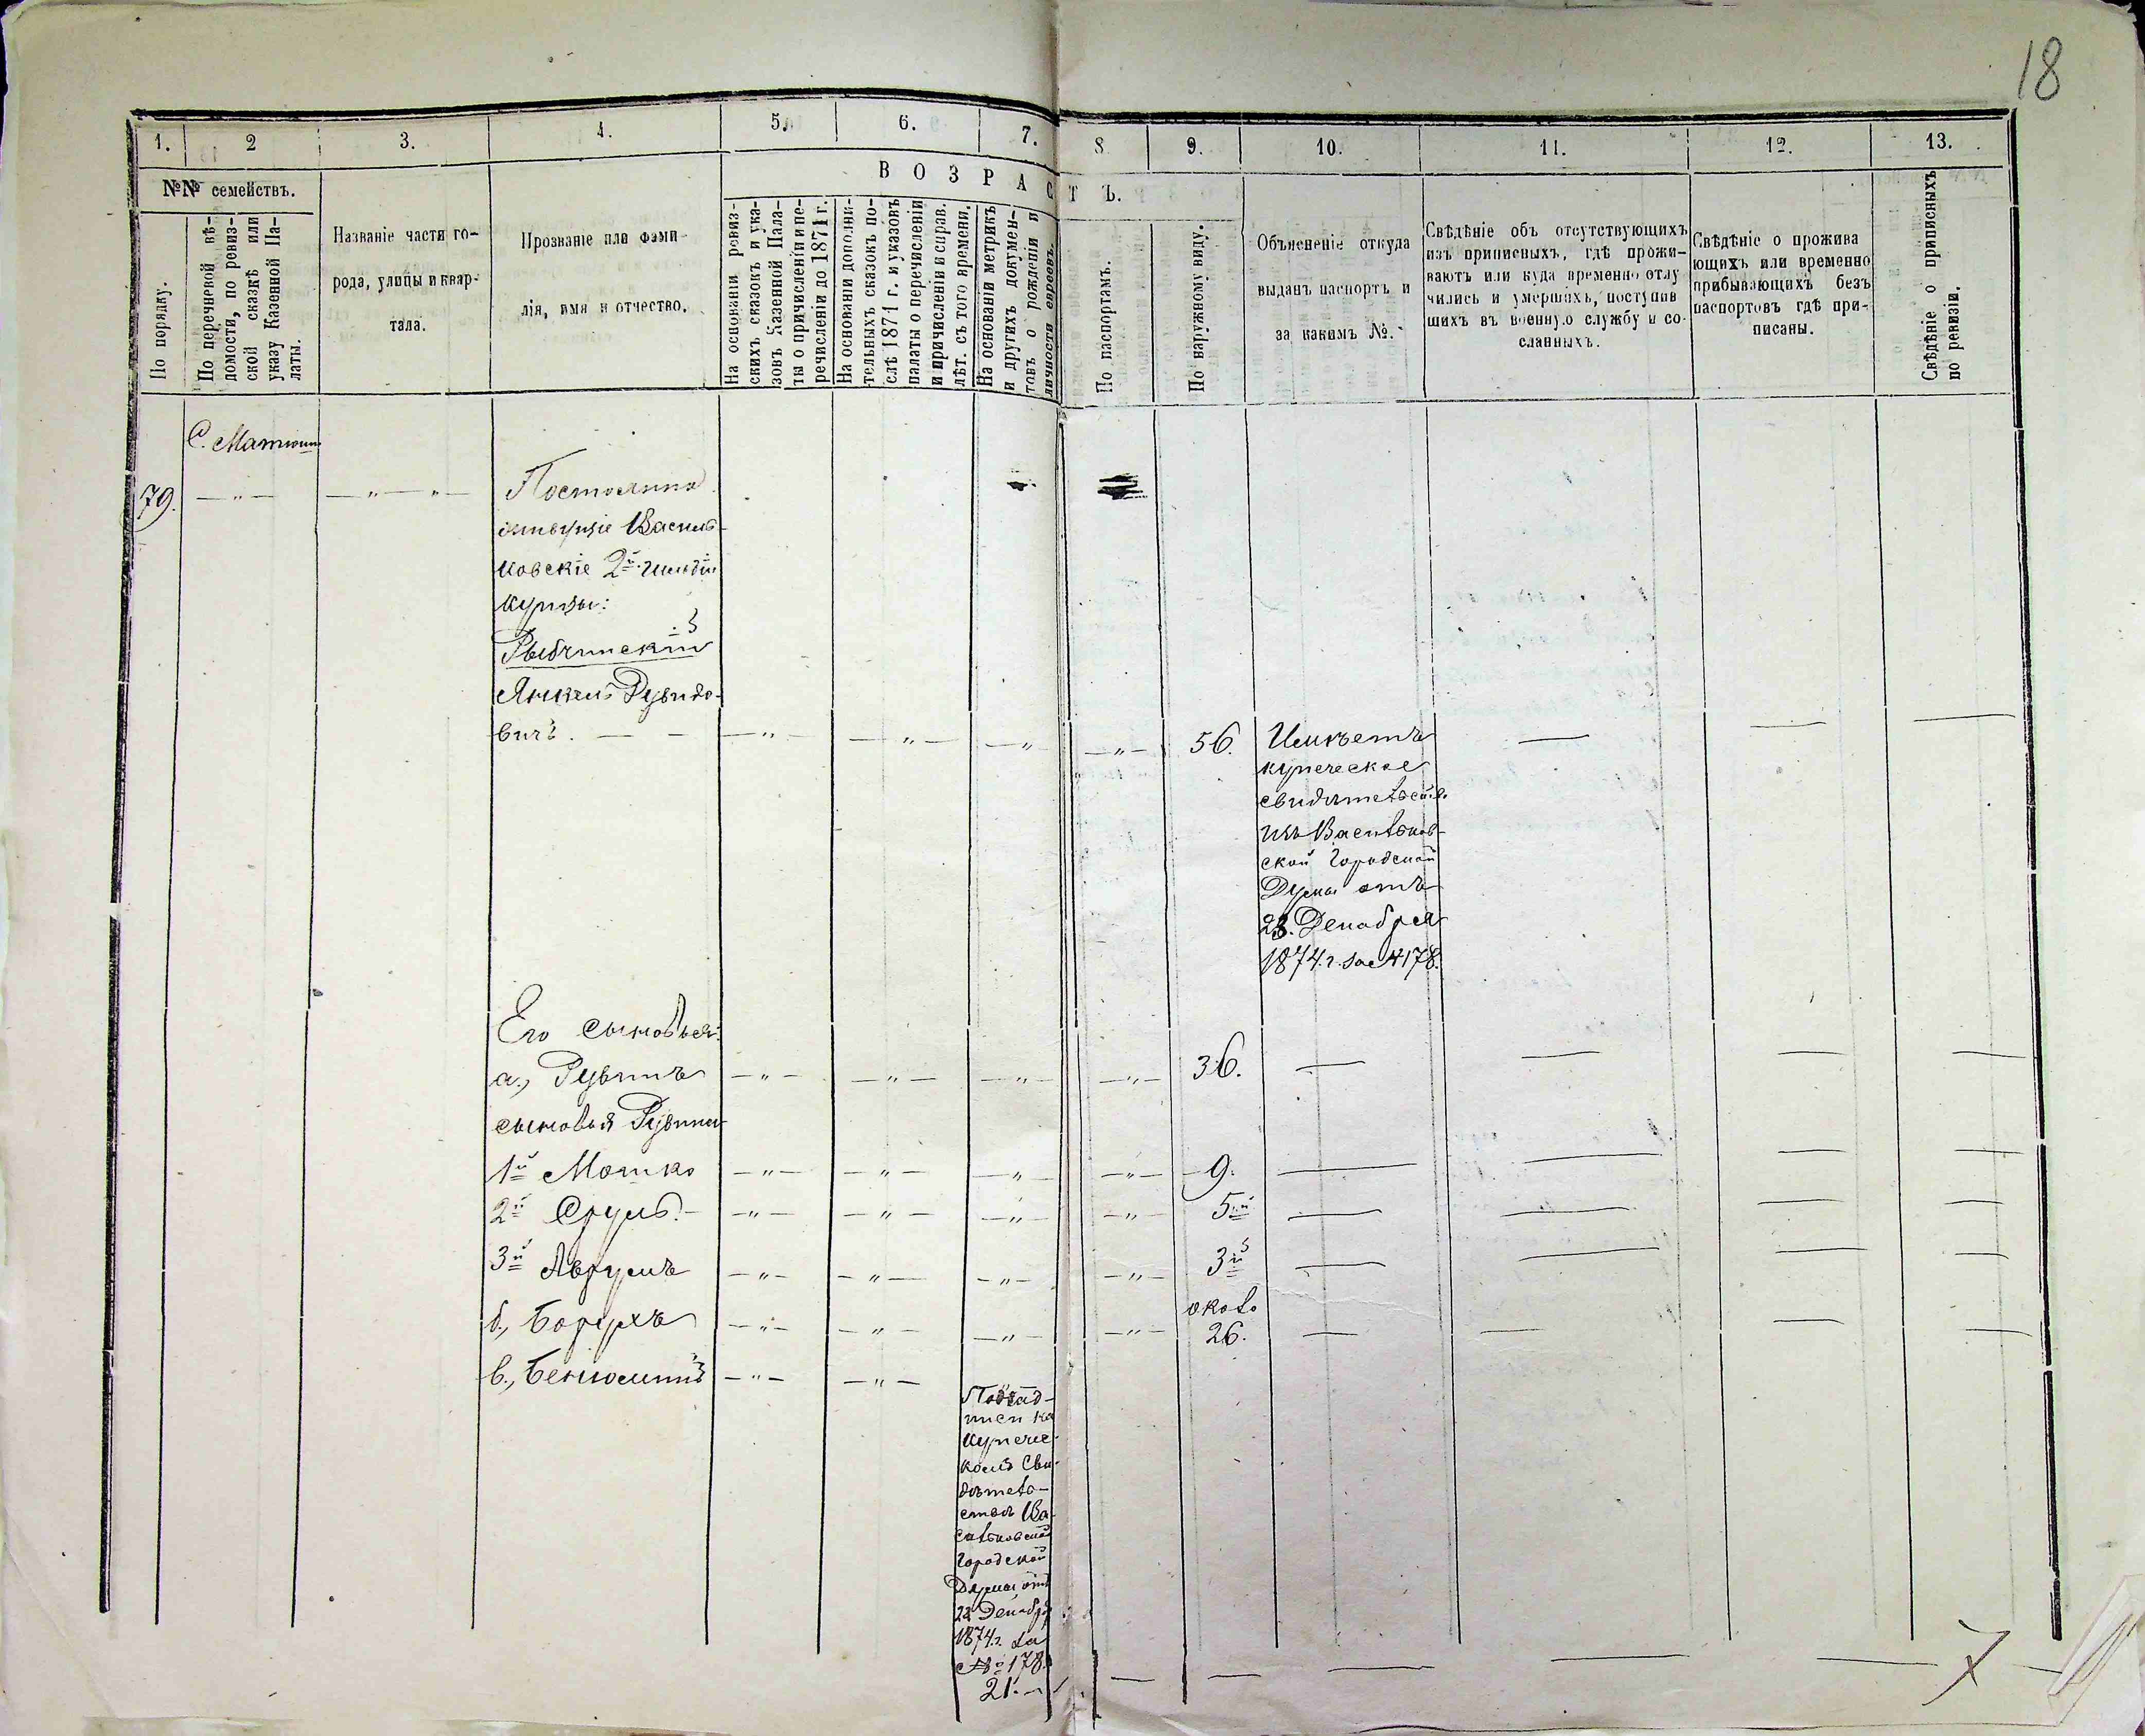 18
1.
2
3.
4.
5.
6.
7.
8
9.
10.
11.
12.
13.
№№ семействъ.
По порядку.
По перечневой вѣ-
домости, по ревиз-
ской сказкѣ или
указу Казенной Па-
латы.
Названіе части го-
рода, улицы и квар-
тала.
Прозваніе или фами-
лія, имя и отчество.
ВОЗРАСТЪ.
На основаніи ревиз-
скихъ сказокъ и ука-
зовъ Казенной Пала-
ты о причисленіи и пе-
речисленіи до 1871 г.
На основаніи дополни-
тельныхъ сказокъ по-
слѣ 1871 г. и указовъ
палаты о перечисленіи
и причисленіи и справ.
лѣт. съ того времени.
На основаніи метрикъ
и другихъ докумен-
товъ о рожденіи и
личности евреевъ.
По паспортамъ.
По наружному виду.
Объясненіе откуда
выданъ паспортъ и
за какимъ №.
Свѣдѣніе объ отсутствующихъ
изъ приписныхъ, гдѣ прожи-
ваютъ или куда временно отлу
чились и умершихъ, поступив
шихъ въ военную службу и со-
сланныхъ.
Свѣдѣніе о прожива
ющихъ или временно
прибывающихъ безъ
паспортовъ гдѣ при-
писаны.
Свѣдѣніе о приписныхъ
по ревизіи.
79.
Постоянно
живущіе Василь-
ковскіе 2й гильдіи
купцы:
Рыбчинскій
Янкель Рувино-
вичъ.
56.
Имѣетъ
купеческое
свидѣтельство
изъ Васильков-
ской Городской
Думы отъ
23. Декабря
1874. г. за №178.
Его сыновья:
а., Рувинъ
36.
сыновья Рувина
1й Мошко
9.
2й Сруль.
5й
3й Аврумъ
3й
б., Борухъ
около
26.
в., Беньюминъ
По над-
писи на
купечес-
комъ Сви-
дѣтель-
ствѣ Ва-
сильковской
Городской
Думы отъ
23 Декабря
1874 г. за
№ 178.
21.